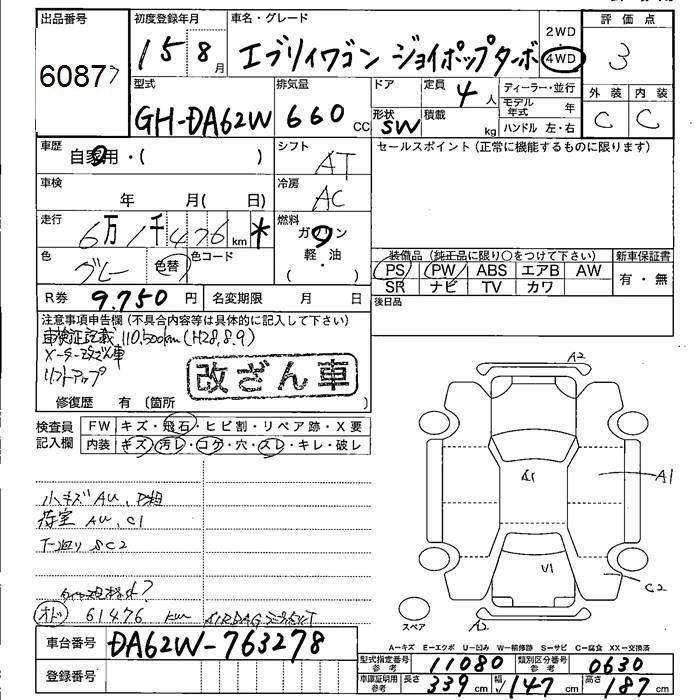 出品番号 初度登録年月 車名・グレード 2WD 評価点
6087
15 8月 エブリィワゴン ジョイポップターボ 4WD 3
型式 排気量 ドア 定員 4人 ディーラー・並行 外装 内装
モデル年式 年
GH-DA62W 660cc 形状 SW 積載 kg ハンドル 左・右 C C
車歴 自家用・( ) シフト AT セールスポイント(正常に機能するものに限ります)
車検 年 月( 日) 冷房 AC
走行 6万1千476km * 燃料 ガソリン
軽・油
( )
色 グレー 色替 色コード
装備品(純正品に限り○をつけて下さい) 新車保証書
PS PW ABS エアB AW 有・無
SR ナビ TV カワ
R券 9.750円 名変期限 月 日 後日品
注意事項申告欄(不具合内容等は具体的に記入して下さい)
車検証記載 110,500km(H28,8.9)
メーター改ざん車
リフトアップ 改ざん車
修復歴 有(箇所 )
検査員 FW キズ・飛石・ヒビ割・リペア跡・X要
記入欄 内装 キズ・汚レ・コゲ・穴・スレ・キレ・破レ
A2
A1 A1
小キズAU、
荷室 AU、C1
下廻り SC2
U1
C2
オド 61476 km
スペア A2
車台番号 DA62W-763278
A−キズ E−エクボ U−凹み W−補修跡 S−サビ C−腐食 XX−交換済
登録番号 型式指定番号 参考 11080 類別区分番号 参考 0630
車庫証明用 参考 長さ 339cm 幅 147cm 高さ 187cm